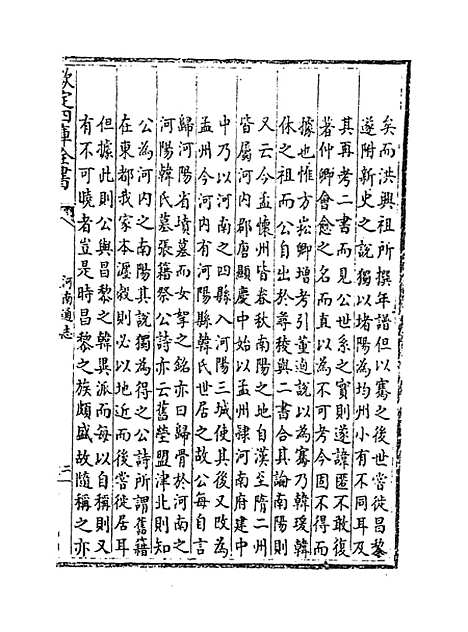 矣而洪興祖所撰年譜但以騫之後世嘗徙昌黎
遂附新史之說獨以堵陽為均州小有不同耳及
其再考二書而見公世系之實則遂諱匿不敢復
著仲卿會愈之名而直以為不可考今固不得而
據也惟方崧卿增考引董逌說以為騫乃韓瑗韓
休之祖而公自出於尋稜與二書合其論南陽則
又云今孟懷州皆春秋南陽之地自漢至隋二州
皆屬河内郡唐顯慶中始以孟州隸河南府建中
中乃以河南之四縣入河陽三城使其後又改為
孟州今河内有河陽縣韓氏世居之故公每自言
歸河陽省墳墓而女挐之銘亦曰歸骨於河南之
河陽韓氏墓張籍祭公詩亦云舊塋盟津北則知
公為河内之南陽其說獨為得之公詩所謂舊籍
在東都我家本瀍穀則必以地近而後嘗徙居耳
但據此則公與昌黎之韓異派而每以自稱則又
有不可曉者豈是時昌黎之族頗盛故隨稱之亦
欽定四庫全書
河南通志